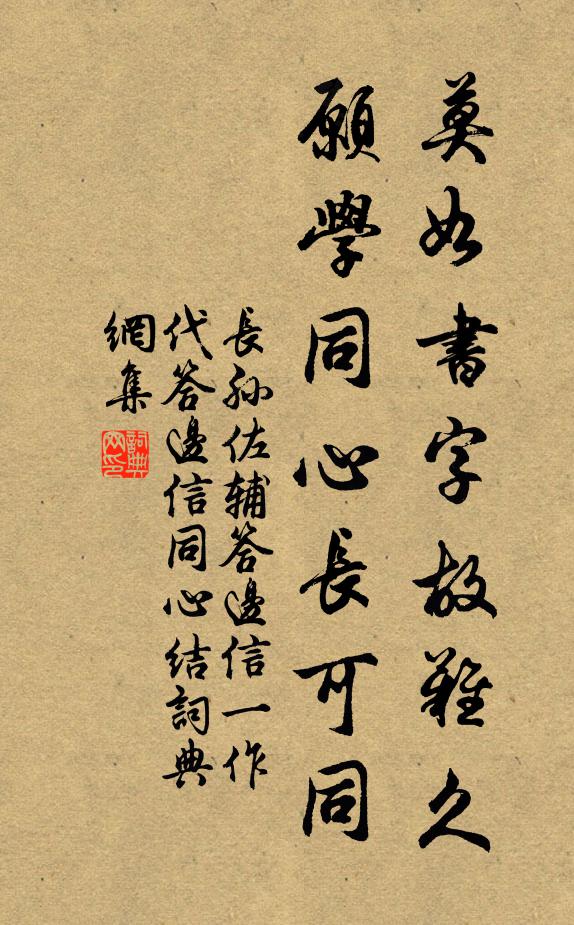 莫如書字故難久
願學同心長可同
長孫佐輔答邊信一作
代答邊信同心结詞典
網集
詞典
网印